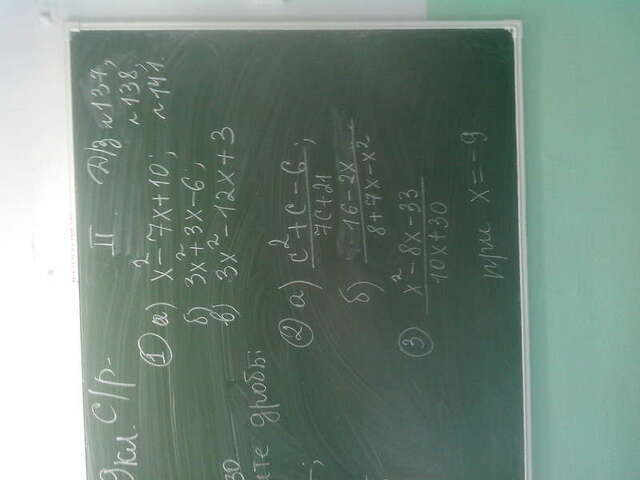 9 кл. С/р-
II Д/з ~137,
~138,
~141.
① а) x²-7x+10;
б) 3x²+3x-6;
в) 3x²-12x+3
30
те дроби:
② а) c²+c-6 / 7c+21;
б) 16-2x / 8+7x-x²
③ x²-8x-33 / 10x+30
при x=-9